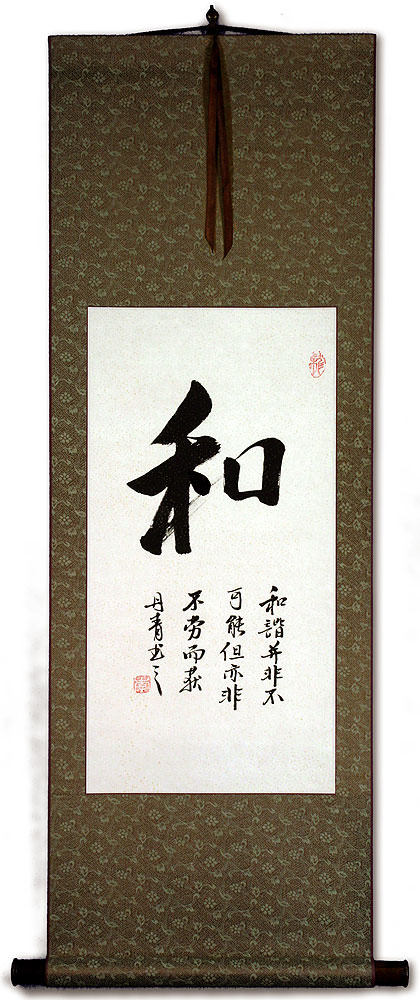 和
和諧并非不
可能但亦非
不劳而获
丹青书之